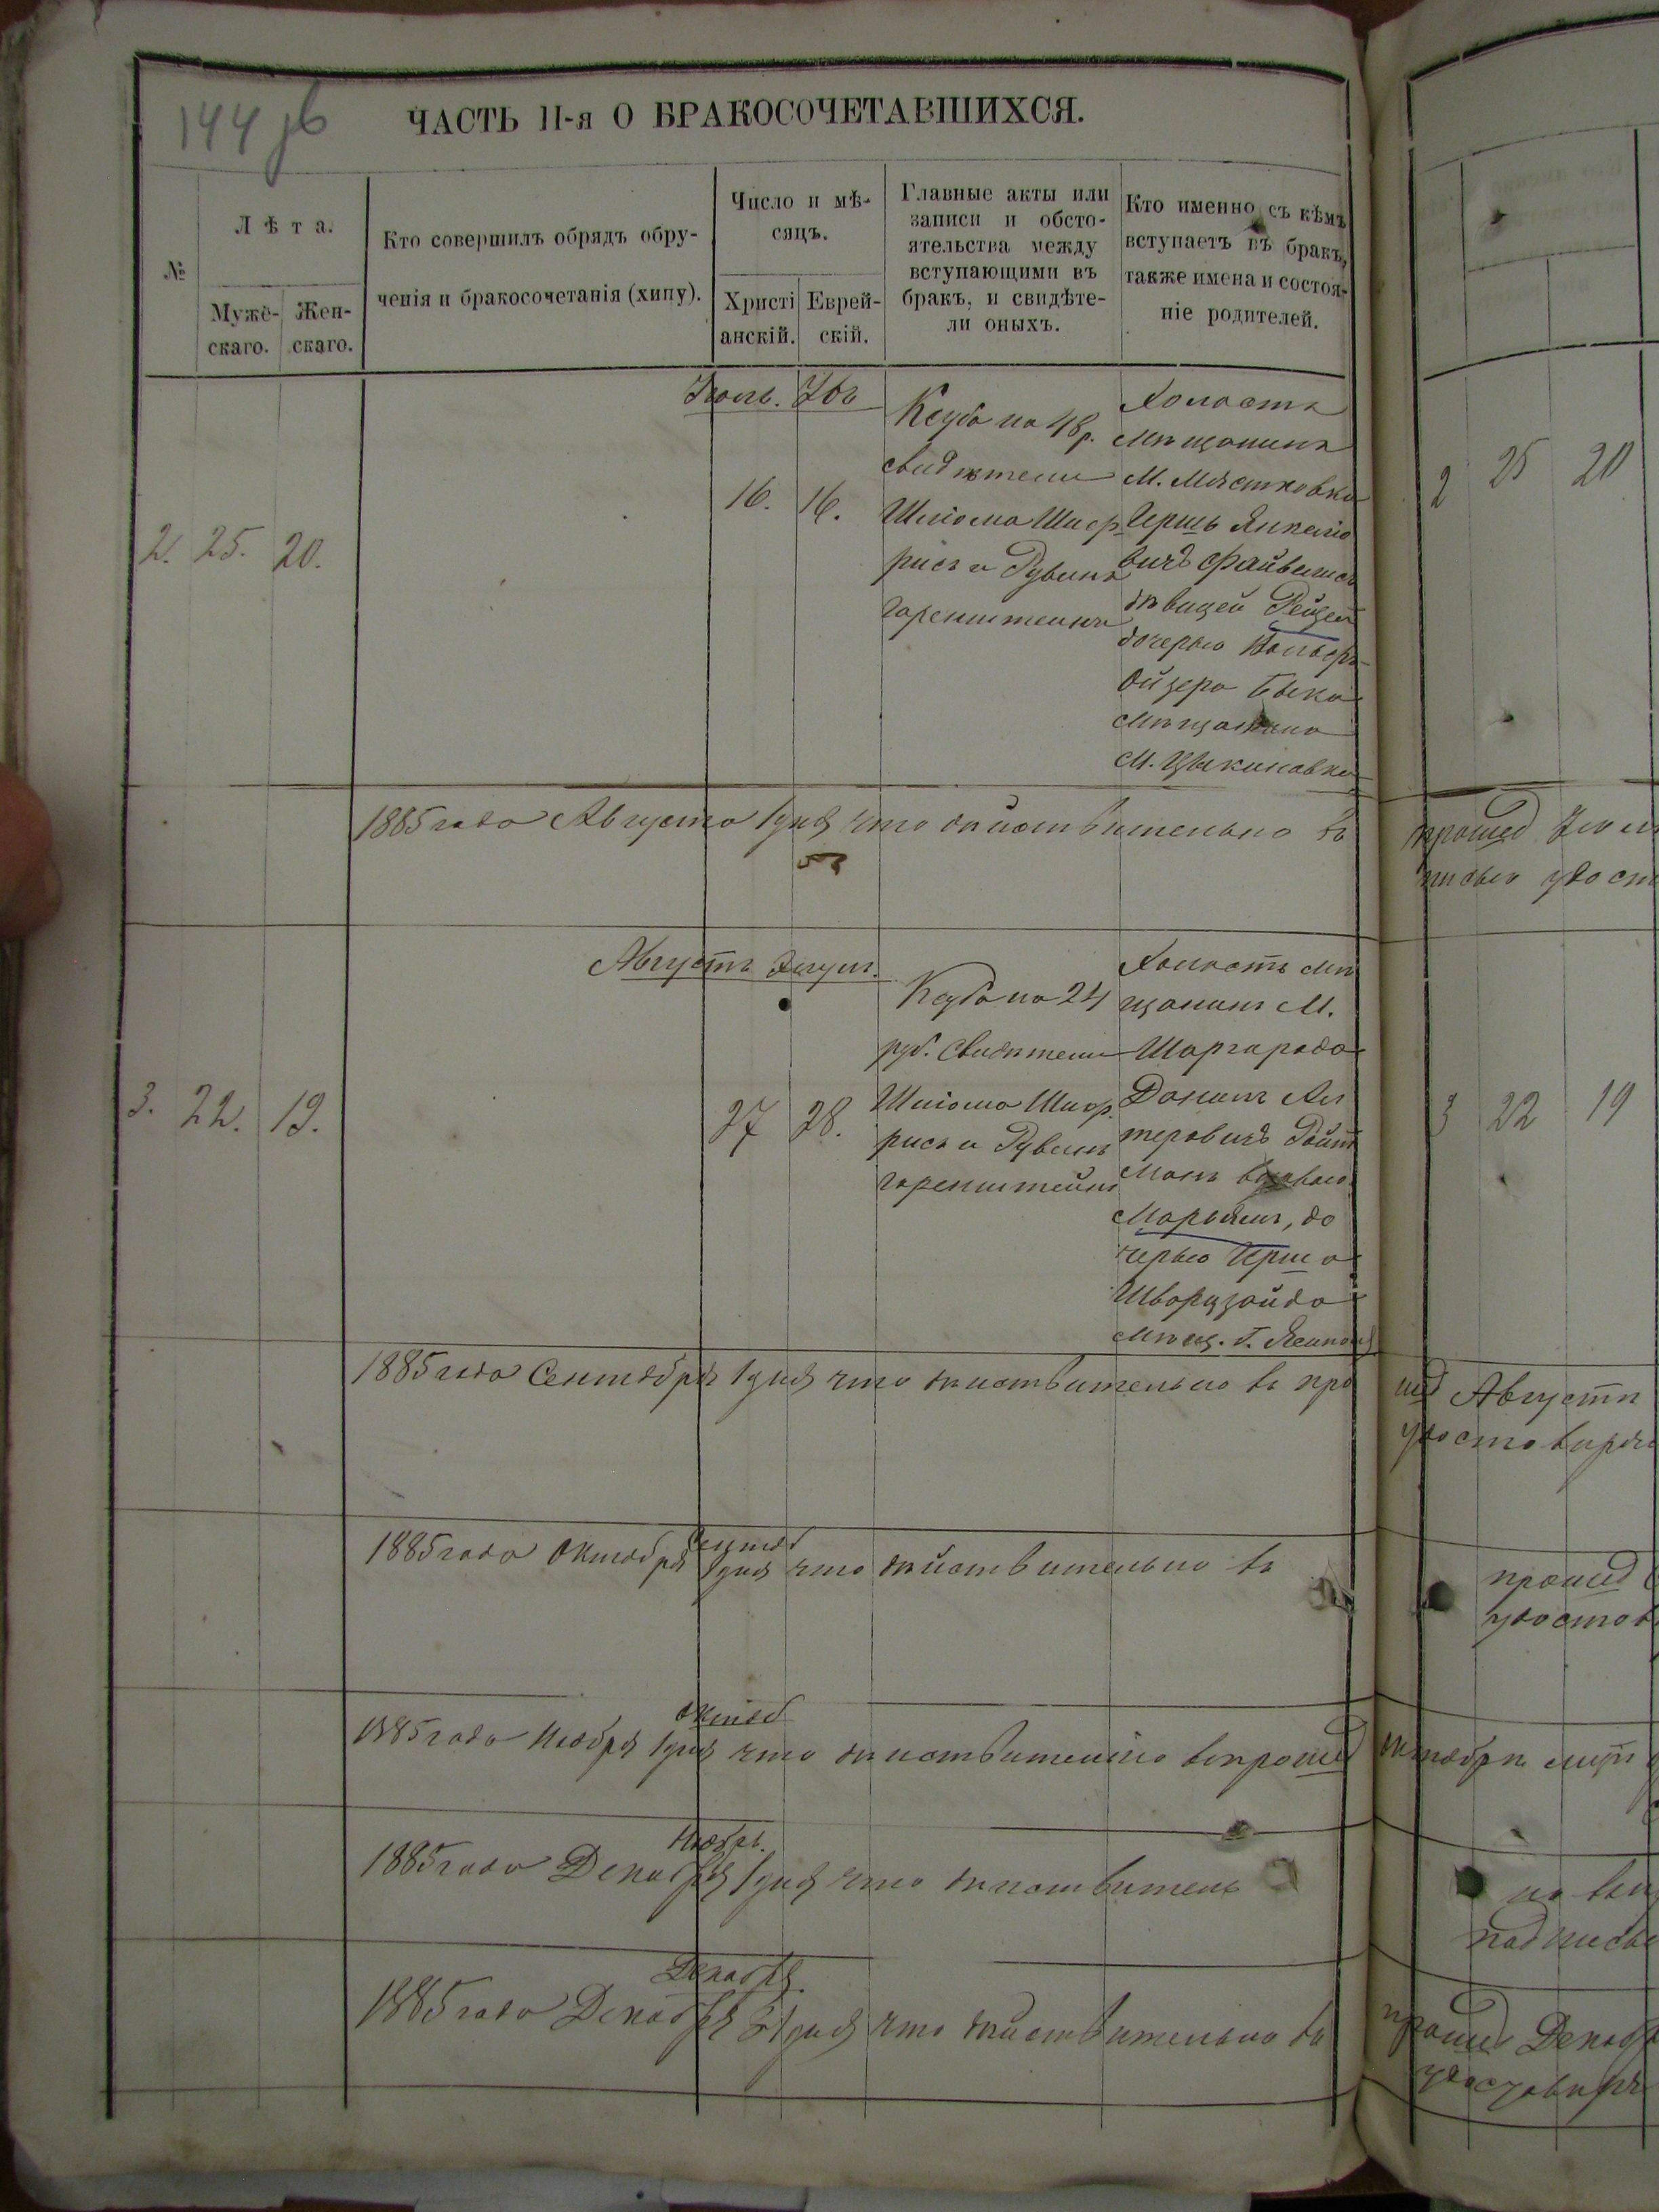 144 зв
ЧАСТЬ II-я О БРАКОСОЧЕТАВШИХСЯ.
№
Лѣта.
Мужс-
скаго.
Жен-
скаго.
Кто совершилъ обрядъ обру-
ченія и бракосочетанія (хипу).
Число и мѣ-
сяцъ.
Христі
анскій.
Еврей-
скій.
Главные акты или
записи и обсто-
ятельства между
вступающими въ
бракъ, и свидѣте-
ли оныхъ.
Кто именно съ кѣмъ
вступаетъ въ бракъ,
также имена и состоя-
ніе родителей.
Іюль.
2. 25. 20.
16. 16.
Ксуба на 48 р.
свидѣтели
Шліома Шпор
рисъ и Рувинъ
горенштейнъ
Холостъ
мѣщанинъ
М. Мястковки
Гершь Янкеліо
вичъ Файвишъ
дѣвицей Рейзей
дочерью
Ойзера Быка
мѣщанина
М. Цыкиновки
1885 года Августа 1 дня что дѣйствительно въ
Августъ Элулъ.
3. 22. 19.
27 28.
Ксуба на 24
руб. свидѣтели
Шліома Шпор
рисъ и Рувинъ
горенштейнъ
Холостъ мѣ
щанинъ М.
Шаргорода
Ал
теровичъ Ройт
манъ вдовою
Марьямъ, до
черью Герша
Шворцзайда
мѣщ. Г. Ямполя
1885 года Сентября 1 дня что дѣйствительно въ про
Сентяб
1885 года Октября 1 дня что дѣйствительно въ
Октяб
1885 года Ноября 1 дня что дѣйствительно въ прошед
Ноябрь.
1885 года Декабря 1 дня что дѣйствитель
Декабрь.
1885 года Декабря 31 дня что дѣйствительно въ
2 25 20
прошед Іюл
писью удост
3 22 19
шед Августѣ
удостовѣряю
прошед
удостов
октябрѣ
но въ
подписью
прошед Декабр